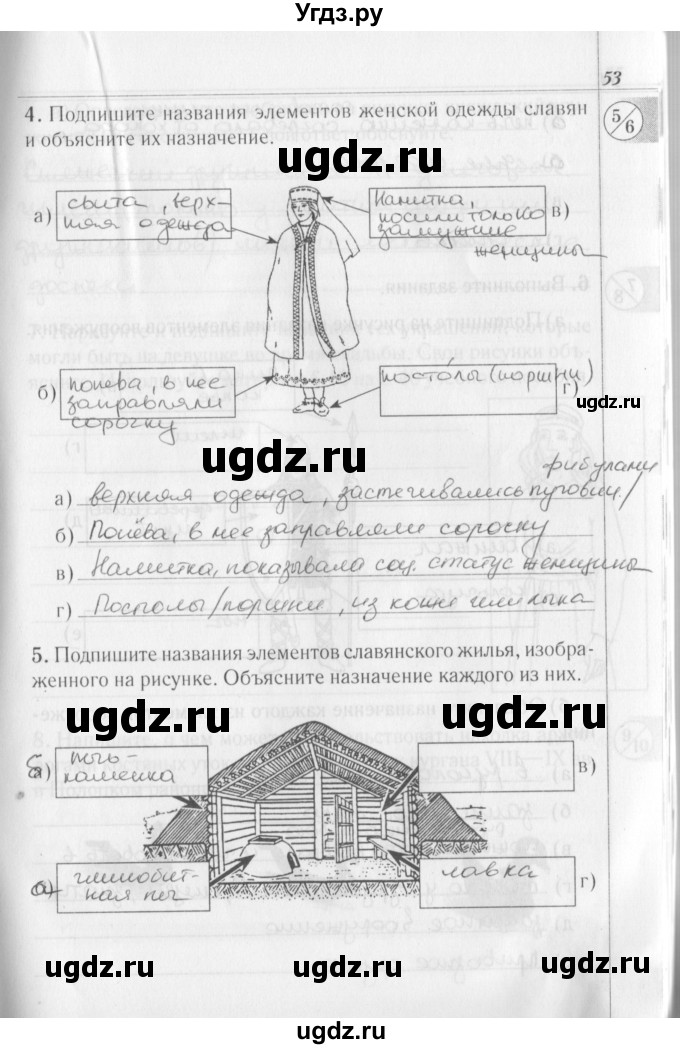 Угдз.ру
53
4. Подпишите названия элементов женской одежды славян
и объясните их назначение.
5/6
ugdz.ru
а) свита, верх-
няя одежда
Намитка,
носили только
замужние
женщины
в)
7/8
6. Выполните задания.
б) понева в нее
заправляли
сорочку
постолы (поршни)
г)
ugdz.ru
ugdz.ru
фибулами
а) верхняя одежда, застегивались пуговиц./
б) Понёва, в нее заправляли сорочку
в) Намитка, показывала соц. статус женщины
г) Постолы/поршни, из кожи или лыка
ugdz.ru
5. Подпишите названия элементов славянского жилья, изобра-
женного на рисунке. Объясните назначение каждого из них.
ugdz.ru
ugdz.ru
9/10
б) печь
каменка
в)
а) глинобит-
ная печ
лавка
г)
ugdz.ru
ugdz.ru
ugdz.ru